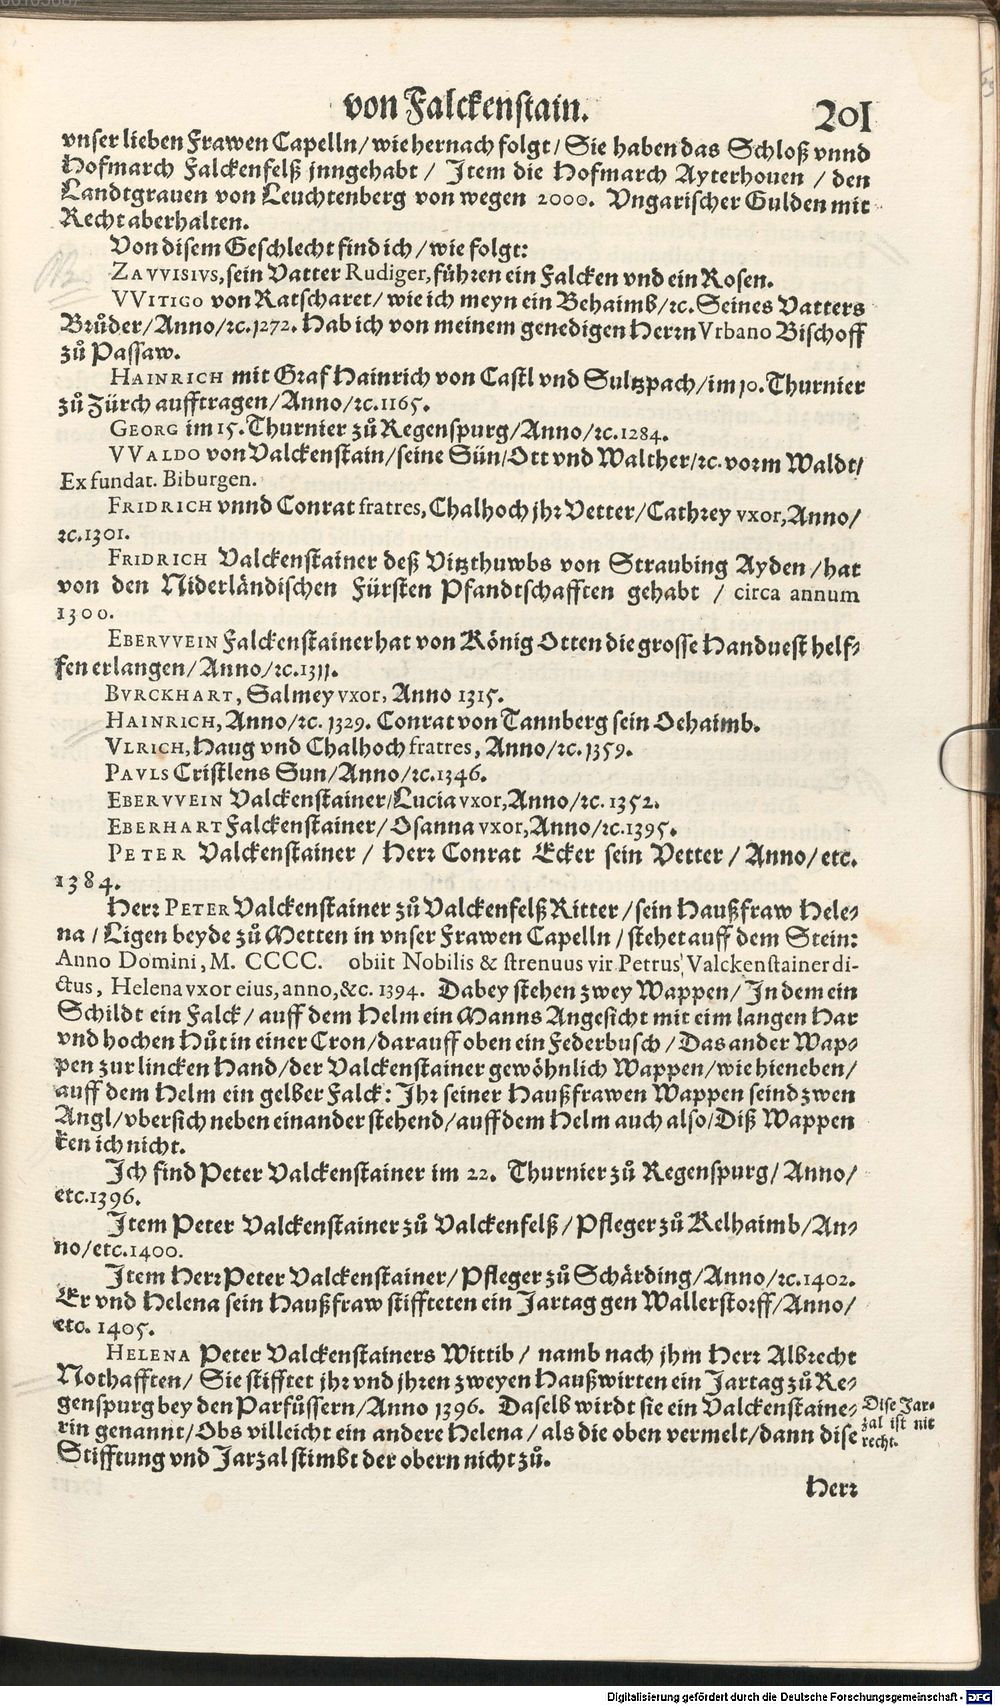 von Falckenstain. 201
vnser lieben Frawen Capelln / wie hernach folgt / Sie haben das Schloß vnnd
Hofmarch Falckenfelß jnngehabt / Item die Hofmarch Ayterhouen / den
Landtgrauen von Leuchtenberg von wegen 2000. Vngarischer Gulden mit
Recht aberhalten.
Von disem Geschlecht find ich / wie folgt:
ZAVVISIVS, sein Vatter Rudiger, führen ein Falcken vnd ein Rosen.
VVITIGO von Ratscharet / wie ich meyn ein Behaimb / ꝛc. Seines Vatters
Brůder / Anno / ꝛc. 1272. Hab ich von meinem genedigen Herrn Vrbano Bischoff
zů Passaw.
HAINRICH mit Graf Hainrich von Castl vnd Sultzpach / im 10. Thurnier
zů Zürch aufftragen / Anno / ꝛc. 1165.
GEORG im 15. Thurnier zů Regenspurg / Anno / ꝛc. 1284.
VVALDO von Valckenstain / seine Sün / Ott vnd Walther / ꝛc. vorm Waldt /
Ex fundat. Biburgen.
FRIDRICH vnnd Conrat fratres, Chalhoch jhr Vetter / Cathrey vxor, Anno /
ꝛc. 1301.
FRIDRICH Valckenstainer deß Vitzthuwbs von Straubing Ayden / hat
von den Niderländischen Fürsten Pfandtschafften gehabt / circa annum
1300.
EBERVVEIN Falckenstainer hat von König Otten die grosse Handuest helf-
fen erlangen / Anno / ꝛc. 1311.
BVRCKHART, Salmey vxor, Anno 1315.
HAINRICH, Anno / ꝛc. 1329. Conrat von Tannberg sein Oehaimb.
VLRICH, Haug vnd Chalhoch fratres, Anno / ꝛc. 1359.
PAVLS Cristlens Sun / Anno / ꝛc. 1346.
EBERVVEIN Valckenstainer / Lucia vxor, Anno / ꝛc. 1352.
EBERHART Falckenstainer / Osanna vxor, Anno / ꝛc. 1395.
PETER Valckenstainer / Herr Conrat Ecker sein Vetter / Anno / etc.
1384.
Herr PETER Valckenstainer zů Valckenfelß Ritter / sein Haußfraw Hele-
na / Ligen beyde zů Metten in vnser Frawen Capelln / stehet auff dem Stein:
Anno Domini, M. CCCC. obiit Nobilis & strenuus vir Petrus Valckenstainer di-
ctus, Helena vxor eius, anno, &c. 1394. Dabey stehen zwey Wappen / In dem ein
Schildt ein Falck / auff dem Helm ein Manns Angesicht mit eim langen Har
vnd hochen Hůt in einer Cron / darauff oben ein Federbusch / Das ander Wap-
pen zur lincken Hand / der Valckenstainer gewöhnlich Wappen / wie hieneben /
auff dem Helm ein gelber Falck: Ihr seiner Haußfrawen Wappen seind zwen
Angl / vbersich neben einander stehend / auff dem Helm auch also / Diß Wappen
ken ich nicht.
Ich find Peter Valckenstainer im 22. Thurnier zů Regenspurg / Anno /
etc. 1396.
Item Peter Valckenstainer zů Valckenfelß / Pfleger zů Kelhaimb / An-
no / etc. 1400.
Item Herr Peter Valckenstainer / Pfleger zů Schärding / Anno / ꝛc. 1402.
Er vnd Helena sein Haußfraw stiffteten ein Jartag gen Wallerstorff / Anno /
etc. 1405.
HELENA Peter Valckenstainers Wittib / namb nach jhm Herr Albrecht
Nothafften / Sie stifftet jhr vnd jhren zweyen Haußwirten ein Jartag zů Re-
genspurg bey den Parfüssern / Anno 1396. Daselb wirdt sie ein Valckenstaine-
rin genannt / Obs villeicht ein andere Helena / als die oben vermelt / dann dise
Stifftung vnd Jarzal stimbt der obern nicht zů.
Dise Jar-
zal ist nit
recht.
Herr
Digitalisierung gefördert durch die Deutsche Forschungsgemeinschaft - DFG